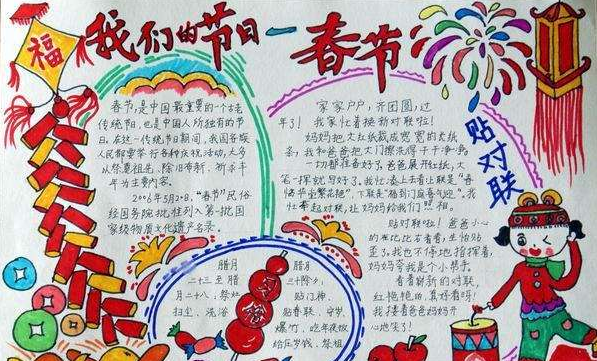 我们的节日一春节
福
春节,是中国最重要的个古老
传统节日,也是中国人所独有的节
日。在这一传统节日期间,我国各族
人民都要举行各种庆祝活动,大多
以祭奠祖先、除旧布新、祈求丰
年为主要内容。
2006年5月20日,"春节"民俗
经国务院批准列入第一批国
家级物质文化遗产名录。
贴对联
家家户户,齐团圆,过
年了!我家忙着换新对联啦!
妈妈把大红纸裁成宽宽的长纸
条,我和爸爸把大门擦洗得干干净净。
一切都准备好了。爸爸展开红纸,大
笔一挥就写好了。我忙上去看上联是"春
繁花艳",下联是"福到门庭喜气迎"。我
忙举起对联,让妈妈给我们照相。
贴对联啦!爸爸小心
左右看看,生怕贴
歪了。我也不停地指挥着,
妈妈夸我是个小帮手。
看着新的对联
红艳艳的,真好看呀!
我搂着爸爸妈妈开
心地笑了!
腊月
二十三至腊
月二十八:祭灶
扫尘、洗浴
腊月
三十除夕:
贴门神、
贴春联、守岁、
爆竹、吃年夜饭
给压岁钱、祭祖